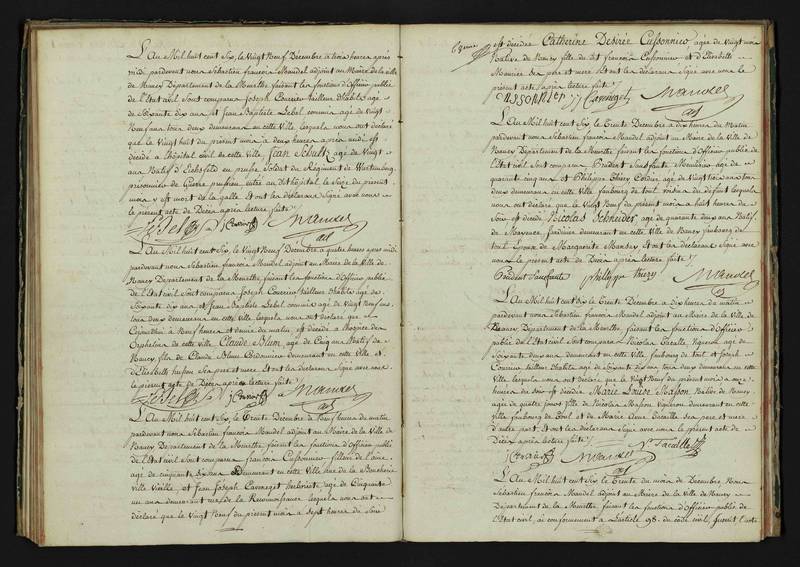 L'An Mil huit cent Six, le Vingt Neuf Décembre à trois heures après
midi pardevant nous Sébastien françois Mandel adjoint au Maire de la ville
de Nancy Département de la Meurthe faisant les fonctions d'Officier public
de l'Etat civil Sont comparus Joseph Courrier tailleur d'habits agé
de Soixante dix ans et Jean Baptiste Lebel commis agé de Vingt
Neuf ans tous deux demeurans en cette Ville lesquels nous ont déclaré
que le Vingt huit du présent mois à deux heures après midi est
décédé à l'hôpital civil de cette Ville Jean Schultz agé de Vingt
ans Natif d' en prusse Soldat du Régiment de
prisonnier de Guerre prussien, entré au dit hôpital le Seize du present
mois y est mort de la galle et ont les déclarans Signé avec nous
le present acte de Décès après lecture faite.
Lebel Courrier Mandel
adj
L'An Mil huit cent Six, le Vingt Neuf Décembre à quatre heures après midi
pardevant nous Sébastien françois Mandel adjoint au Maire de la Ville de
Nancy Département de la Meurthe faisant les fonctions d'Officier public
de l'Etat civil Sont comparus Joseph Courrier tailleur d'habits agé de
Soixante dix ans et Jean Baptiste Lebel commis agé de Vingt Neuf ans
tous deux demeurans en cette Ville lesquels nous ont déclaré que
Cejourd'hui à Neuf heures et demie du matin est décédé à l'hospice des
Orphelins de cette ville Claude Blum agé de Cinq ans Natif de
Nancy, fils de Claude Blum demeurant en cette Ville et
d'Elisabeth Ses père et mere et ont les déclarans Signé avec nous
le present acte de Décès après lecture faite.
Lebel Courrier Mandel
adj
L'An Mil huit cent Six le Trente Décembre à Neuf heures du matin
pardevant nous Sébastien françois Mandel adjoint au Maire de la Ville de
Nancy Département de la Meurthe faisant les fonctions d'Officier public
de l'Etat civil Sont comparus françois Cussonnier fileur de laine
agé de cinquante ans Demeurant en cette Ville rue de la Boucherie
Ville Vieille, et Jean Joseph herboriste agé de Cinquante
un ans demeurant rue de la lesquels nous ont
déclaré que le Vingt Neuf du present mois à Sept heures du Soir
est décédée Catherine Désirée Cussonnier agée de Vingt mois
Native de Nancy fille du dit françois Cussonnier et d'Elisabeth
Ses pere et mere et ont les déclarans Signé avec nous le
présent acte de Décès après lecture faite.
Mandel
adj
L'An Mil huit cent Six le Trente Décembre à dix heures du Matin
pardevant nous Sébastien françois Mandel adjoint au Maire de la Ville de
Nancy Département de la Meurthe faisant les fonctions d'Officier public de
l'Etat civil Sont comparus Prudent Menuisier agé de
quarante cinq ans et Philippe Thiery Cordier agé de Vingt trois ans tous
deux demeurans en cette Ville, faubourg de toul voisins du défunt lesquels
nous ont déclaré que le Vingt Neuf du present mois à huit heures du
Soir est décédé Nicolas Schneider agé de quarante deux ans Natif
de Mayence Jardinier demeurant en cette Ville de Nancy faubourg de
toul Epoux de Marguerite et ont les déclarans Signé avec
nous le present acte de Décès après lecture faite.
Prudent philippe thiery Mandel
adj
L'An Mil huit cent Six le Trente Décembre à dix heures du matin
pardevant nous Sébastien françois Mandel adjoint au Maire de la Ville de
Nancy Département de la Meurthe, faisant les fonctions d'Officier
public de l'Etat civil Sont comparus Nicolas Vigneron agé de
Soixante deux ans demeurant en cette Ville, faubourg de toul et Joseph
Courrier tailleur d'habits agé de Soixante dix ans tous deux demeurans en cette
Ville lesquels nous ont déclaré que le Vingt Neuf du présent mois à onze
heures du Soir est décédée Marie Louise Masson Native de Nancy
agée de quatre jours fille de Nicolas Masson Vigneron demeurant en cette
Ville faubourg de Toul et de Marie Anne Ses pere et mere
d'autre part. Et ont les déclarans Signé avec nous le present acte de
Décès après lecture faite.
Courrier Mandel
adj
L'An Mil huit cent Six le Trente du mois de Décembre, Nous
Sébastien françois Mandel adjoint au Maire de la Ville de Nancy
Département de la Meurthe, faisant les fonctions d'Officier public de
l'Etat civil, conformement à l'article 98 du code civil, l'acte